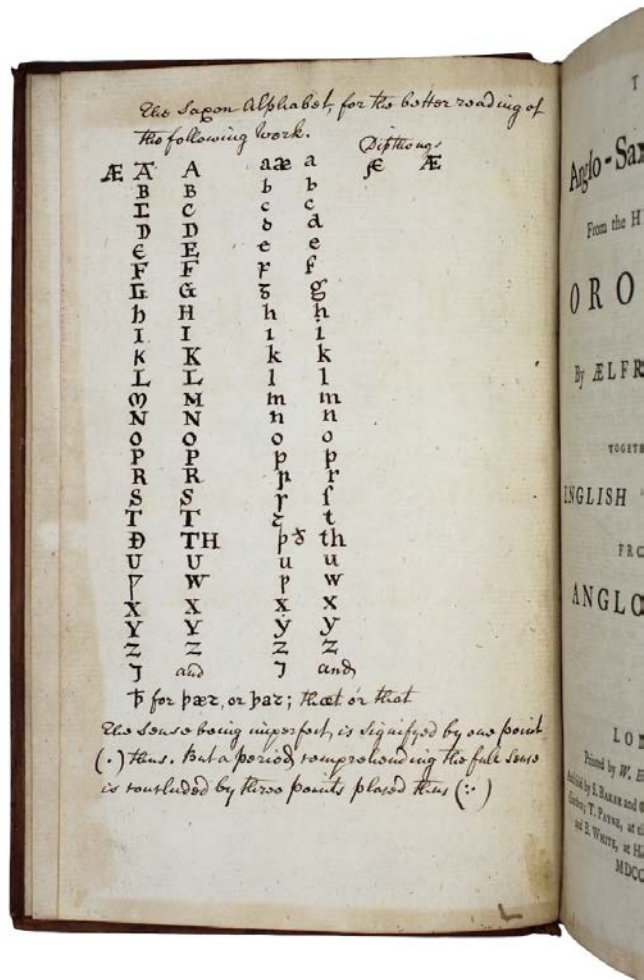 The Saxon Alphabet, for the better reading of
the following work.
Dipthongs
Æ A A aæ a Æ Æ
B B b b
C C c c
D D ꝺ d
E E e e
F F ꝼ f
G G ᵹ g
h H h h
I I ı ı
K K k k
L L l l
M M m m
N N n n
O O o o
P P p p
R R ꞃ r
S S ꞅ ſ
T T ꞇ t
Ð TH þ ð th
U U u u
Ƿ W ƿ w
X X x x
Y Y ẏ y
Z Z z z
⁊ and ⁊ and
ꝥ for þæꞇ, or þaꞇ; thæt or that
The Sense being imperfect, is signifyed by one point
(.) thus. But a period comprehending the full sense
is concluded by three points placed thus (:·)
T
Anglo-Sax
From the H
ORO
By ÆLFR
TOGETH
ENGLISH
FRO
ANGLO
LO
Printed by W. B
S. BAKER and
T. PAYNE, at
and B. WHITE, at H
MDCC